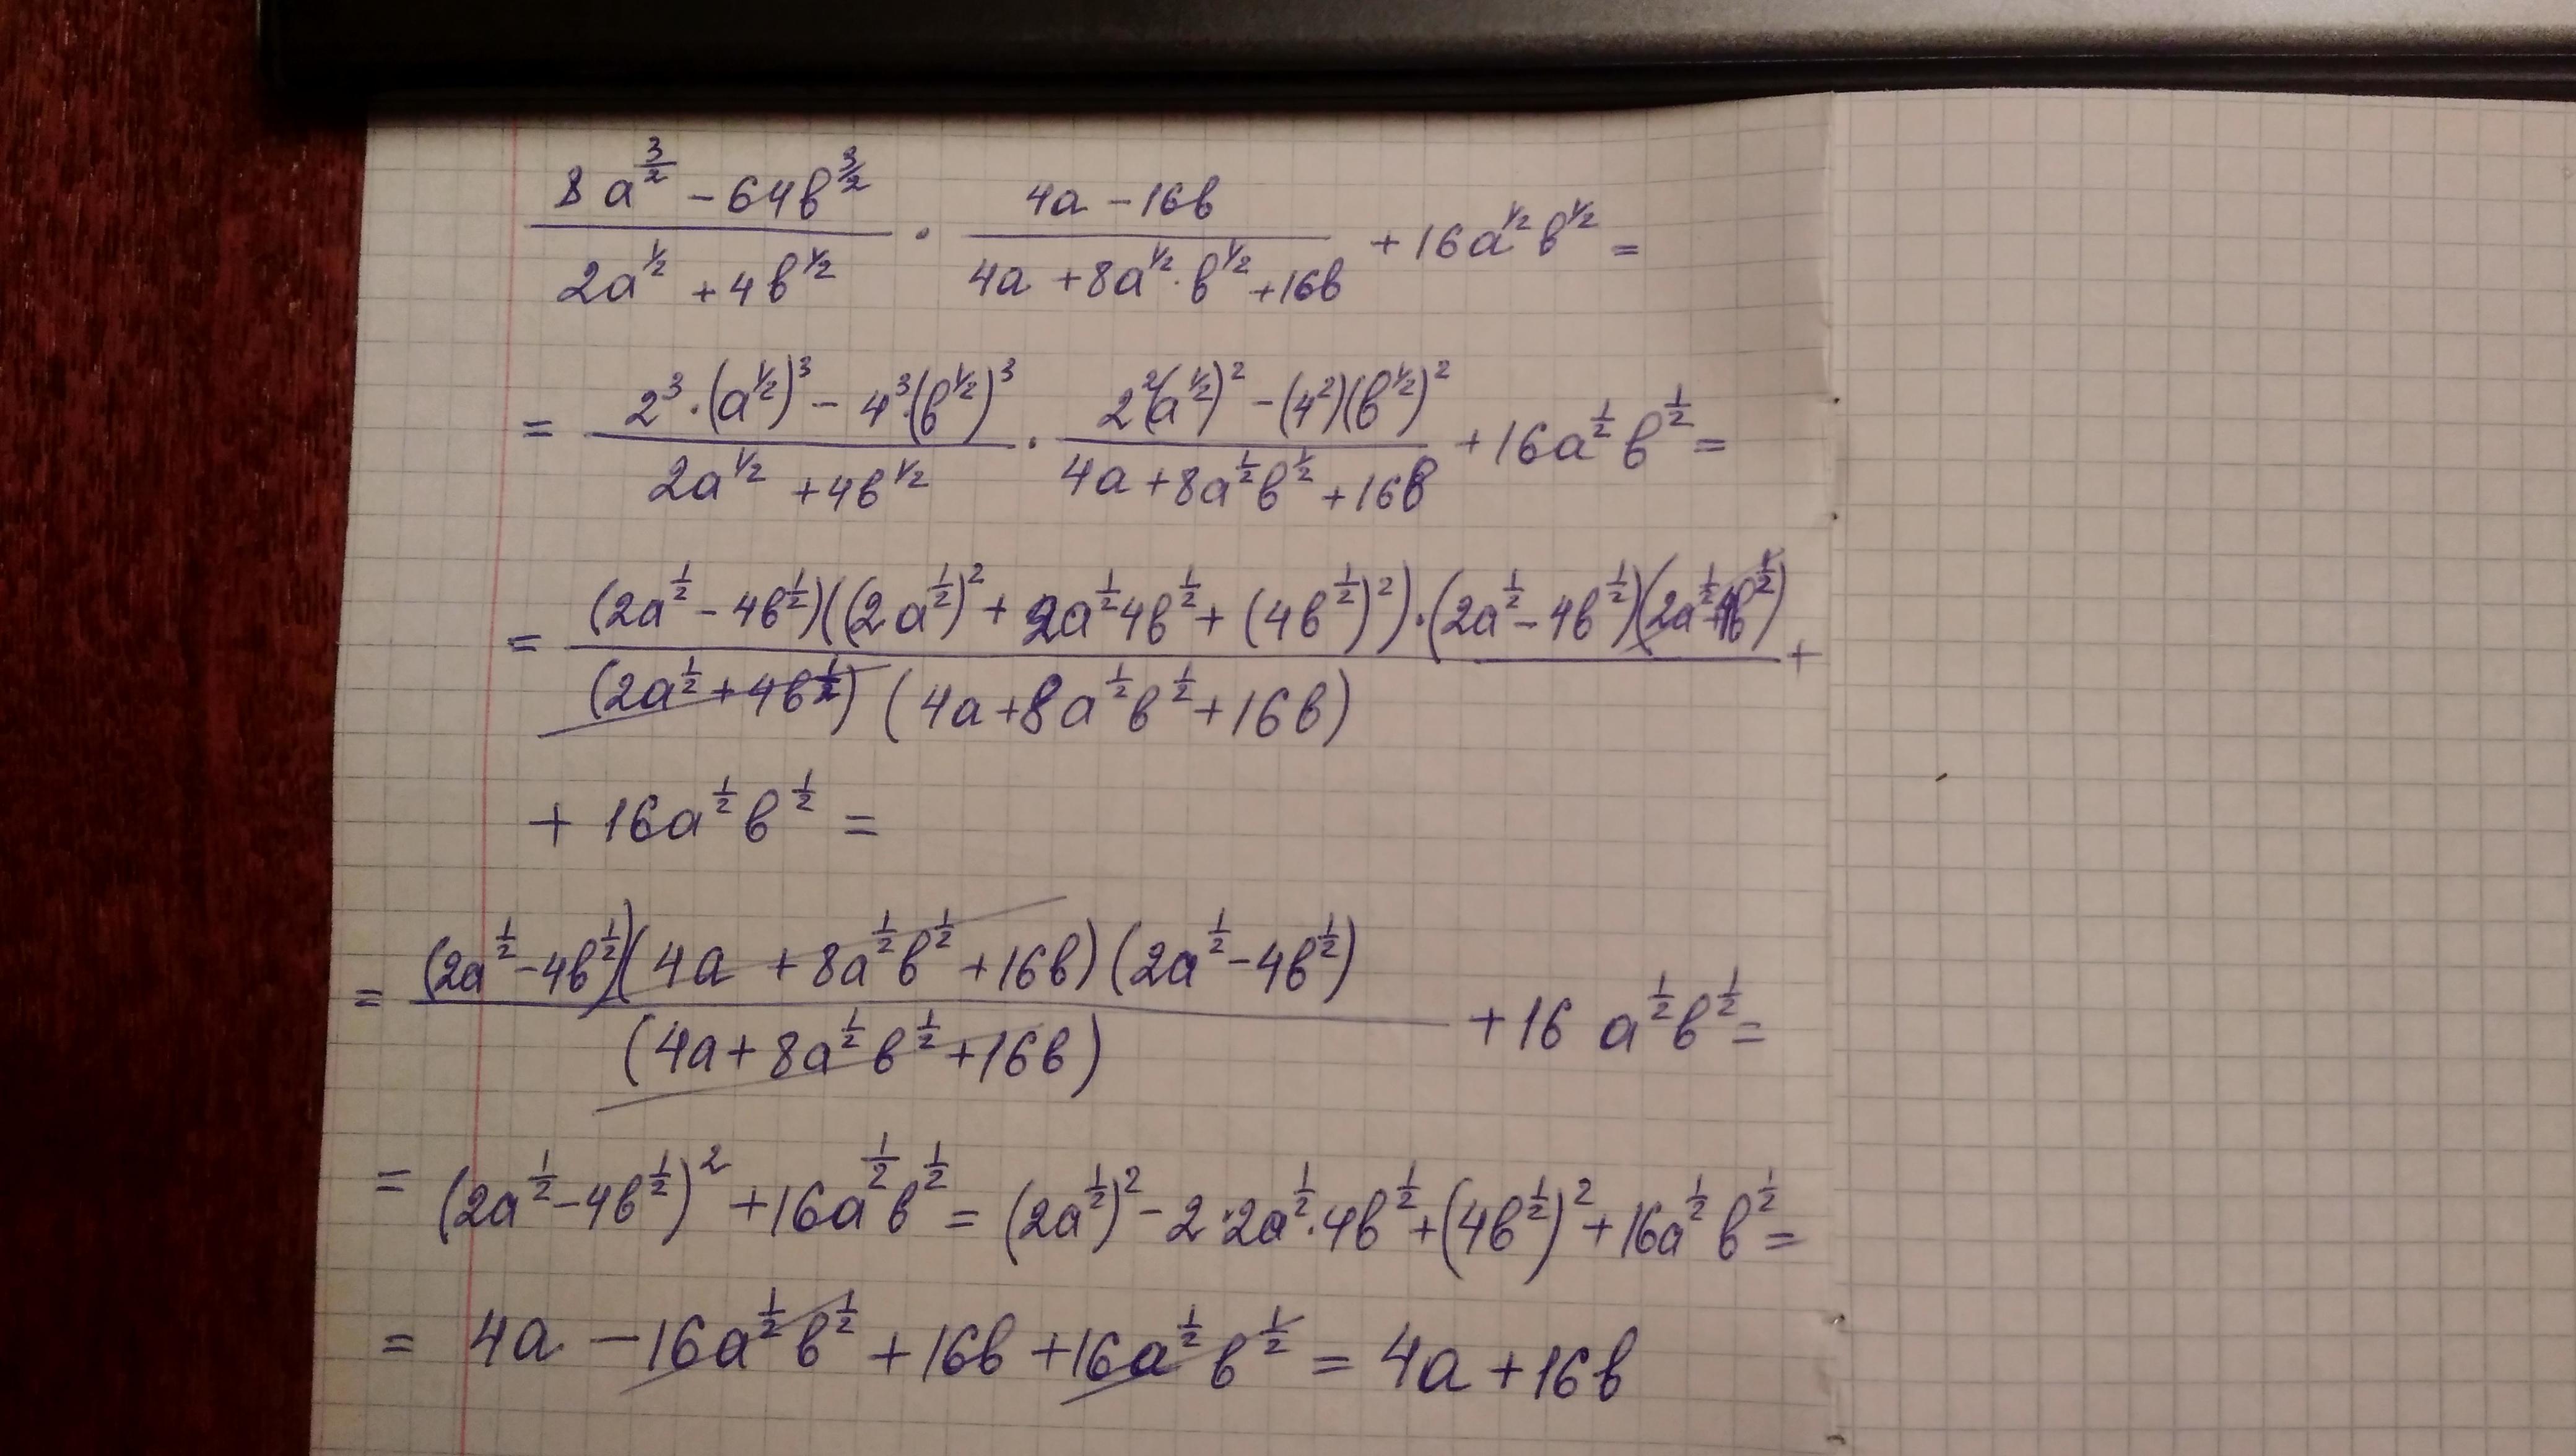 (8a^(3/2) - 64в^(3/2))/(2a^(1/2) + 4в^(1/2)) · (4a - 16в)/(4a + 8a^(1/2) · в^(1/2) + 16в) + 16a^(1/2) в^(1/2) =
= (2^3 · (a^(1/2))^3 - 4^3 · (в^(1/2))^3)/(2a^(1/2) + 4в^(1/2)) · (2^2 (a^(1/2))^2 - (4^2)(в^(1/2))^2)/(4a + 8a^(1/2) в^(1/2) + 16в) + 16a^(1/2) в^(1/2) =
= ((2a^(1/2) - 4в^(1/2))((2a^(1/2))^2 + 2a^(1/2) 4в^(1/2) + (4в^(1/2))^2) · (2a^(1/2) - 4в^(1/2))(2a^(1/2) + 4в^(1/2)))/((2a^(1/2) + 4в^(1/2))(4a + 8a^(1/2) в^(1/2) + 16в)) +
+ 16a^(1/2) в^(1/2) =
= ((2a^(1/2) - 4в^(1/2))(4a + 8a^(1/2) в^(1/2) + 16в)(2a^(1/2) - 4в^(1/2)))/((4a + 8a^(1/2) в^(1/2) + 16в)) + 16 a^(1/2) в^(1/2) =
= (2a^(1/2) - 4в^(1/2))^2 + 16a^(1/2) в^(1/2) = (2a^(1/2))^2 - 2 · 2a^(1/2) · 4в^(1/2) + (4в^(1/2))^2 + 16a^(1/2) в^(1/2) =
= 4a - 16a^(1/2) в^(1/2) + 16в + 16a^(1/2) в^(1/2) = 4a + 16в